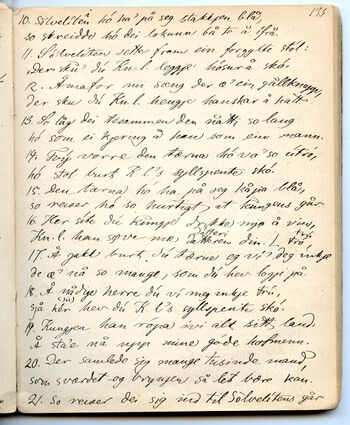 193
10. Sølvelilen hó ha' på seg stakkjen blå,
so skreidde hó dei lokunn bå te å ifrå.
11. Sølvelilen sette fram ein forgyllte stól:
Der sku' dú Kn.l. leggje hósur å skó.
12. Åmafor mi sæng der æ' ein gullknapp,
der sku dú Kn.l. hengje hanskar å hatt
13. So låg dei tesammen den nått, so lang
hó som ei kjæring å han som ein mann.
14. Forj vorre den tærna hó va' so utró,
hó stol burt K l's syllspente skó.
15. Den tærna hó ha, på seg kåpa blå,
so reiser hó so hurtigt, te kungens går
16. Her site dú kungje drikke mjø å vin,
Kn.l. han søve mæ dotteren din.
17. Å gakk burt, dú tærne eg vi' deg inkje tru
de æ' nå so mange, som dú hev logje på.
18. Å nådige herre dú vi meg inkje tró,
sjå her hev dú K l's syllspente skó.
19. Kungjen han ropa ivi alt sitt land.
Å sta'e nå upp mine gode hofmenn.
20. Der samlede sig mange tusinde mand,
som sværdet og brynjen så let bære kan.
21. So reiser dei sig ind til Sølvelitens går